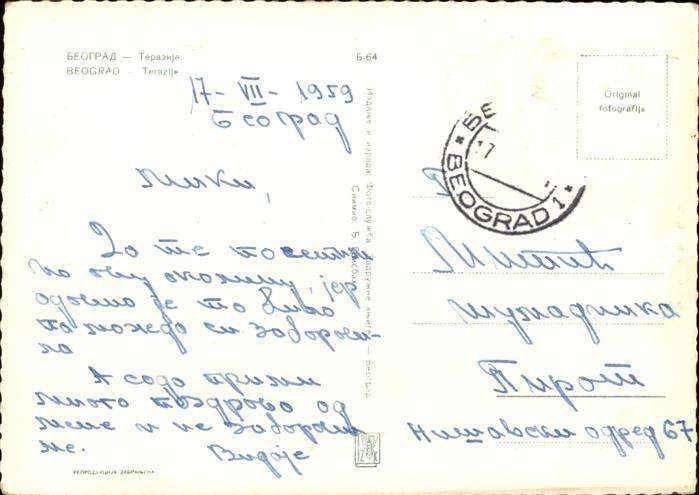 БЕОГРАД — Теразије
BEOGRAD - Terazije
Б-64
17-VII-1959
Београд
Мики,
Да те посетим
на ову околину, јер
одавно је то било
па можда си заборави-
ла
А сада прими
много поздрава од
мене и не заборави
ме.
Видоје
РЕПРОДУКЦИЈА ЗАБРАЊЕНА
Издање и израда: Фото-служба Задружне књиге — Београд
Снимио: Б.
Original
fotografija
БЕ
17
BEOGRAD 1
Шумадинка
Пирот
Нишавски одред 67